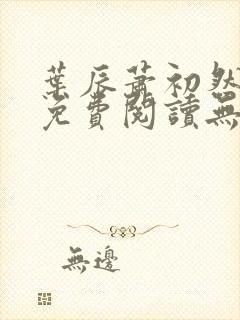 葉辰蕭初然
免費閱讀無
無邊